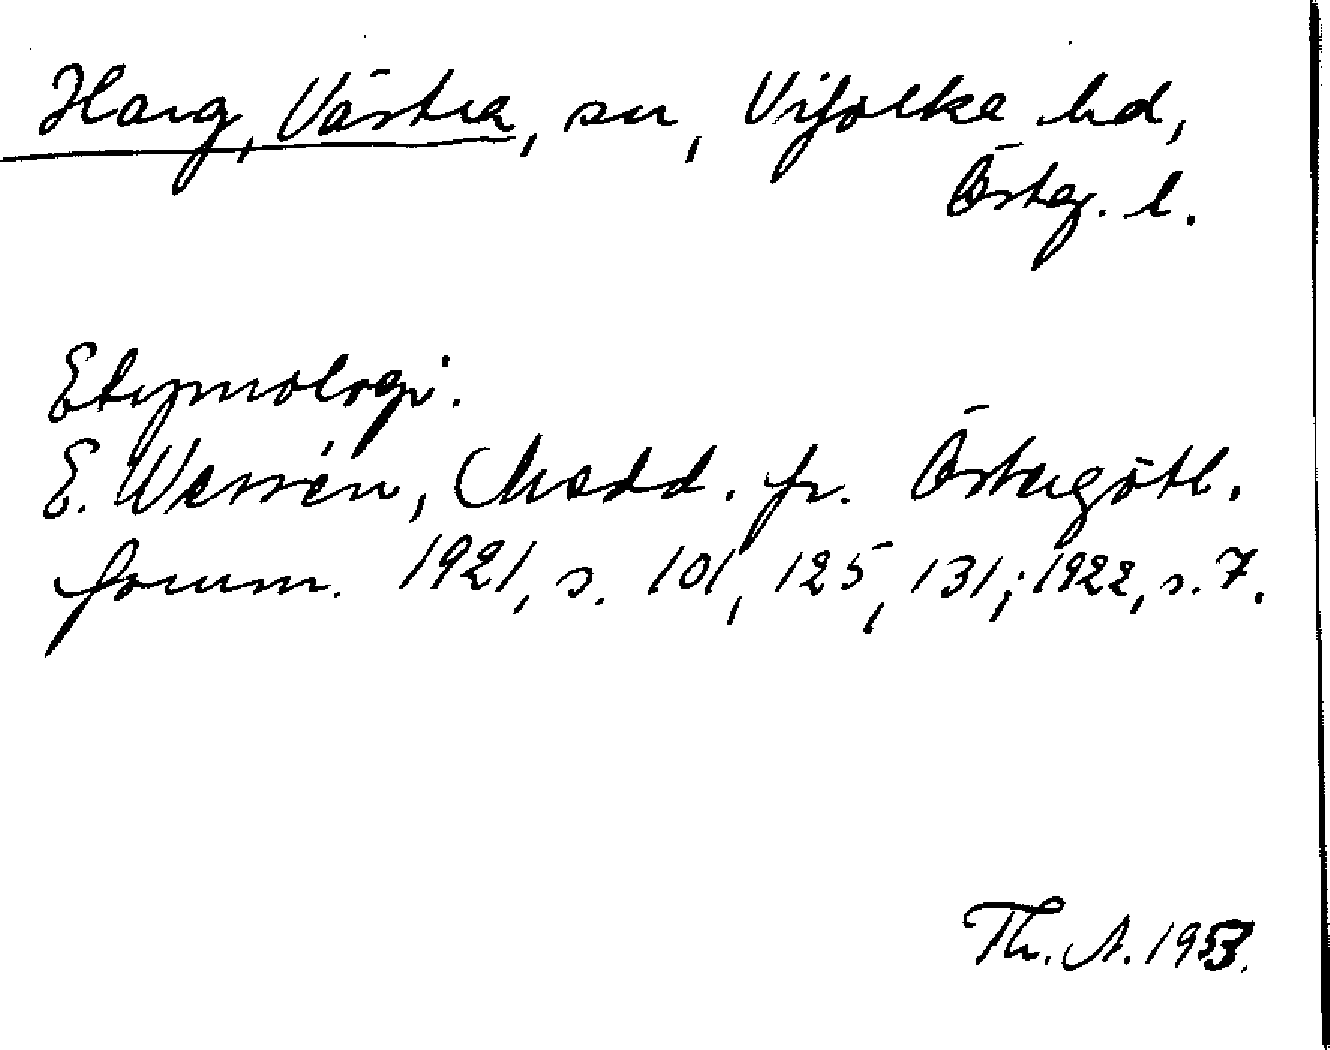 Harg, Västra, sn, Vifolka hd,
Österg. l.
Etymologi.
E. Wessén, Medd. fr. Östergötl.
fornm. 1921, s. 101, 125, 131; 1922, s. 7.
Th. A. 1953.